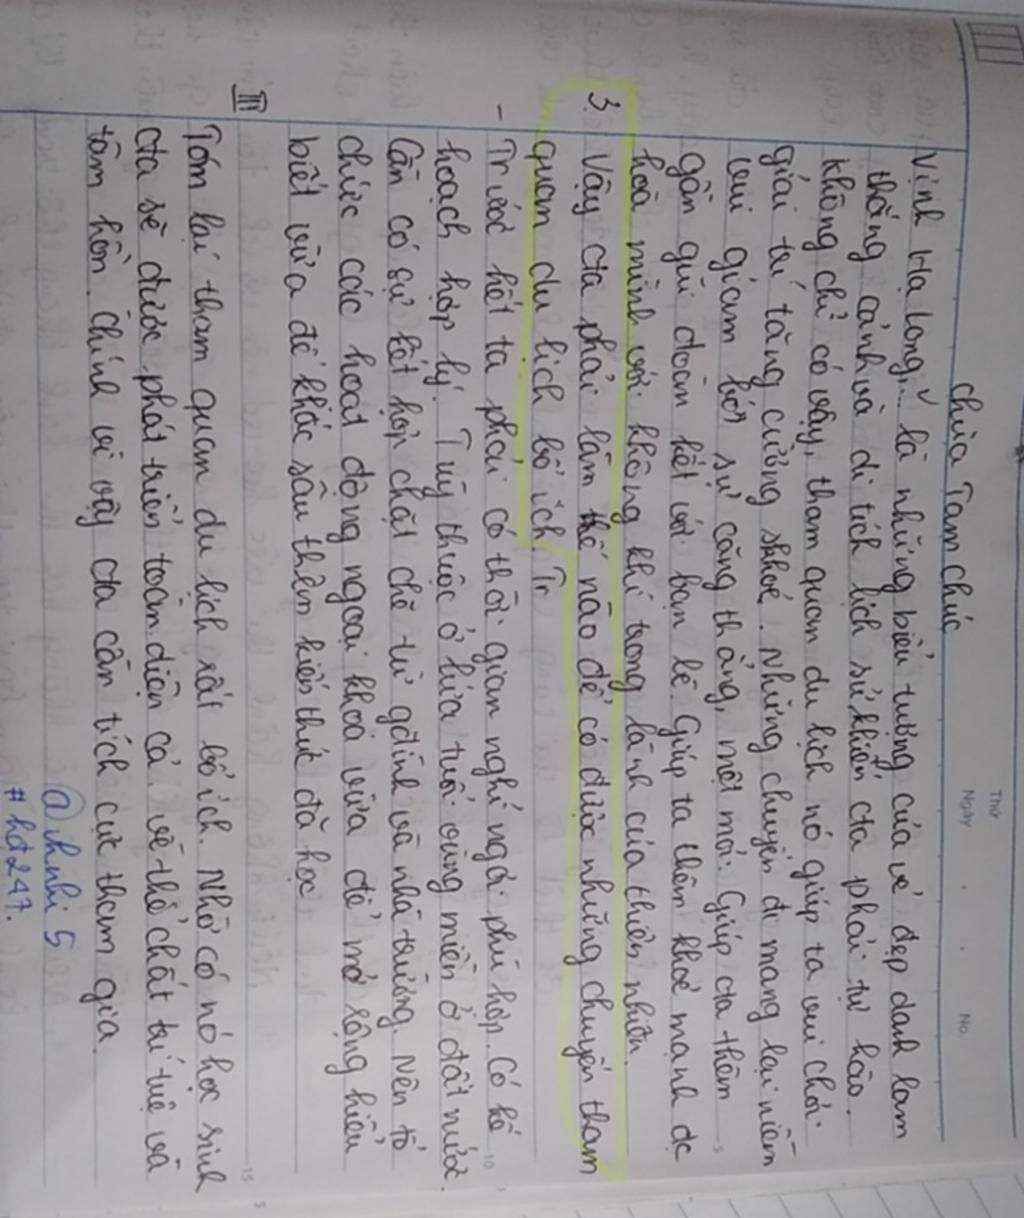 Thứ
Ngày . . No.
chùa Tam Chúc
Vịnh Hạ Long,... là những biểu tượng của vẻ đẹp danh lam
thắng cảnh và di tích lịch sử khiến cta phải tự hào.
không chỉ có vậy, tham quan du lịch nó giúp ta vui chơi
giải trí tăng cường skhoẻ. Những chuyến đi mang lại niềm
vui giảm bớt sự căng thẳng, mệt mỏi. Giúp cta thêm
gần gũi đoàn kết với bạn bè Giúp ta thêm khoẻ mạnh đc
hoà mình với không khí trong lành của thiên nhiên
3. Vậy cta phải làm thế nào để có được những chuyến tham
quan du lịch bổ ích Tr
- Trước hết ta phải có thời gian nghỉ ngơi phù hợp. Có kế
hoạch hợp lý. Tùy thuộc ở lứa tuổi vùng miền ở đất nước.
Cần có sự kết hợp chặt chẽ từ gđình và nhà trường. Nên tổ
chức các hoạt động ngoại khoá vừa để mở rộng hiểu
biết vừa để khắc sâu thêm kiến thức đã học
III
Tóm lại tham quan du lịch rất bổ ích. Nhờ có nó học sinh
cta sẽ được phát triển toàn diện cả về thể chất trí tuệ và
tâm hồn. Chính vì vậy cta cần tích cực tham gia.
@nhnhi 5
# hđ247.
5
10
15